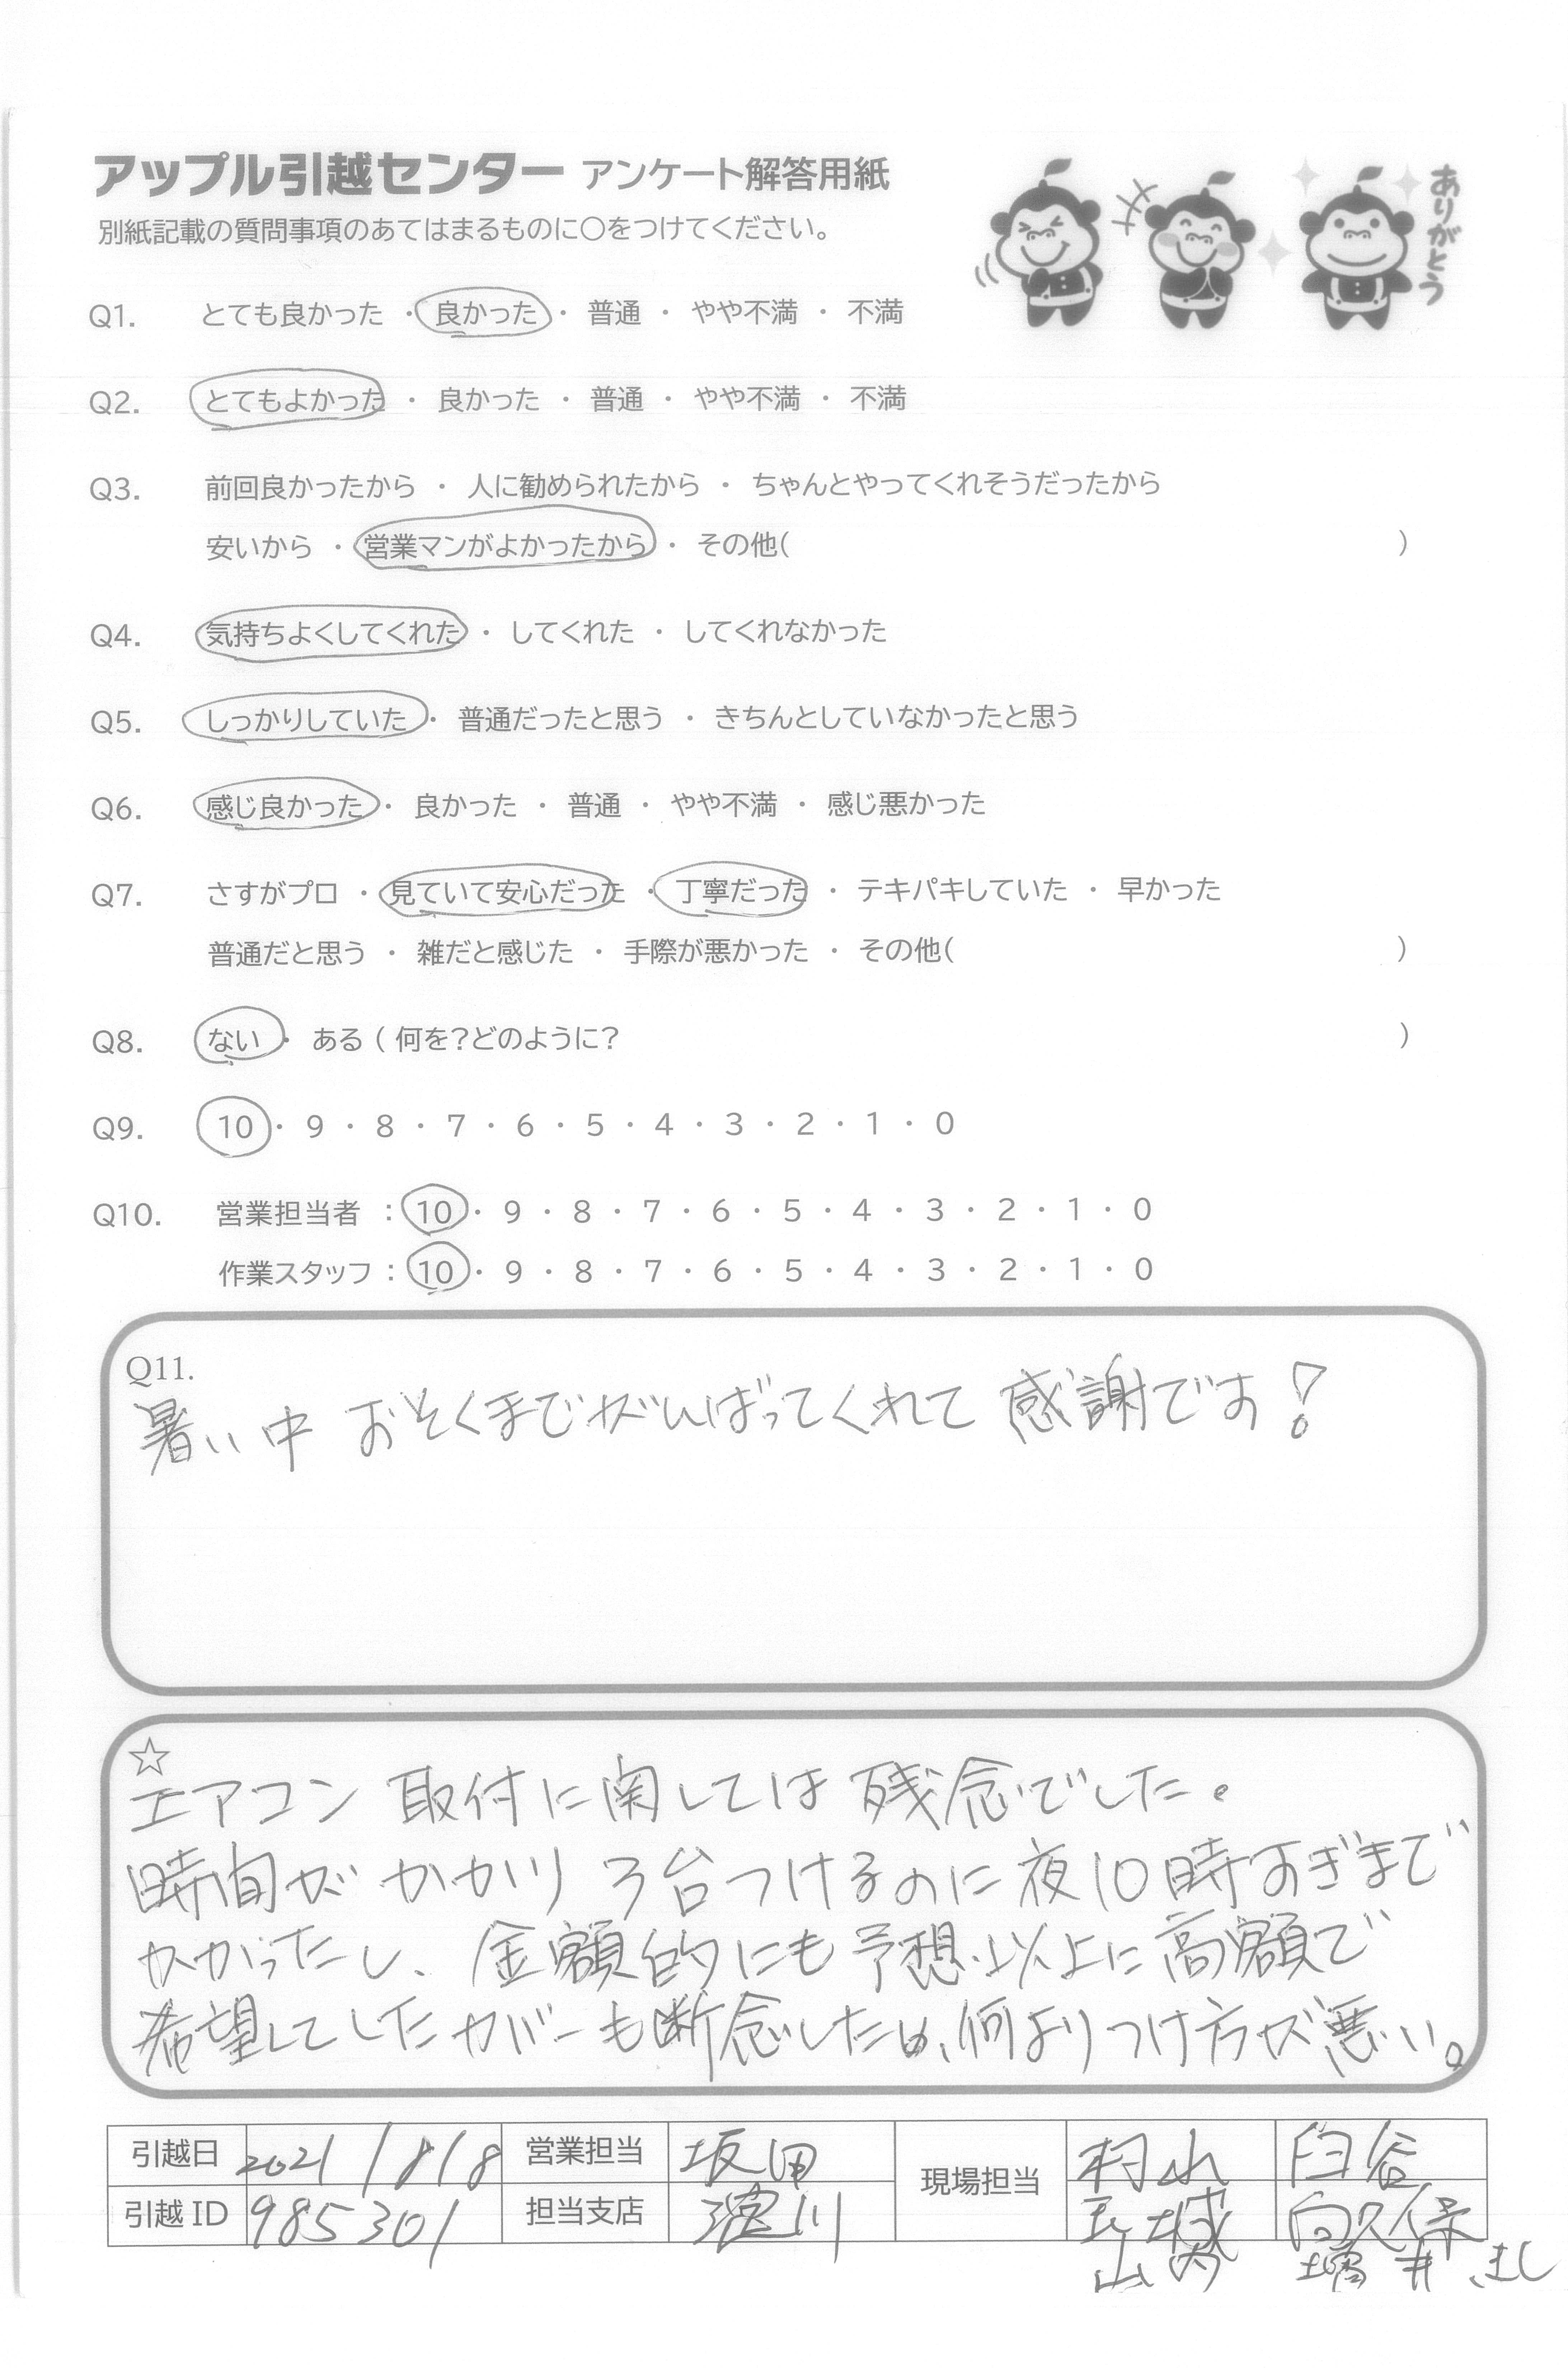 アップル引越センター アンケート解答用紙
ありがとう
別紙記載の質問事項のあてはまるものに○をつけてください。
Q1. とても良かった ・ 良かった ・ 普通 ・ やや不満 ・ 不満
Q2. とてもよかった ・ 良かった ・ 普通 ・ やや不満 ・ 不満
Q3. 前回良かったから ・ 人に勧められたから ・ ちゃんとやってくれそうだったから
安いから ・ 営業マンがよかったから ・ その他( )
Q4. 気持ちよくしてくれた ・ してくれた ・ してくれなかった
Q5. しっかりしていた ・ 普通だったと思う ・ きちんとしていなかったと思う
Q6. 感じ良かった ・ 良かった ・ 普通 ・ やや不満 ・ 感じ悪かった
Q7. さすがプロ ・ 見ていて安心だった ・ 丁寧だった ・ テキパキしていた ・ 早かった
普通だと思う ・ 雑だと感じた ・ 手際が悪かった ・ その他( )
Q8. ない ・ ある ( 何を?どのように? )
Q9. 10 ・ 9 ・ 8 ・ 7 ・ 6 ・ 5 ・ 4 ・ 3 ・ 2 ・ 1 ・ 0
Q10. 営業担当者 : 10 ・ 9 ・ 8 ・ 7 ・ 6 ・ 5 ・ 4 ・ 3 ・ 2 ・ 1 ・ 0
作業スタッフ : 10 ・ 9 ・ 8 ・ 7 ・ 6 ・ 5 ・ 4 ・ 3 ・ 2 ・ 1 ・ 0
Q11.
暑い中 おそくまでがんばってくれて 感謝です!
☆
エアコン 取付に関しては 残念でした。
時間が かかり 3台つけるのに 夜10時すぎまで
かかったし、金額的にも 予想以上に高額で
希望してしたカバーも断念したり、何よりつけ方が悪い。
引越日 2021/8/8 営業担当 坂田 現場担当 村山 臼谷
引越ID 985301 担当支店 淀川 玉城 向久保
山内 増井